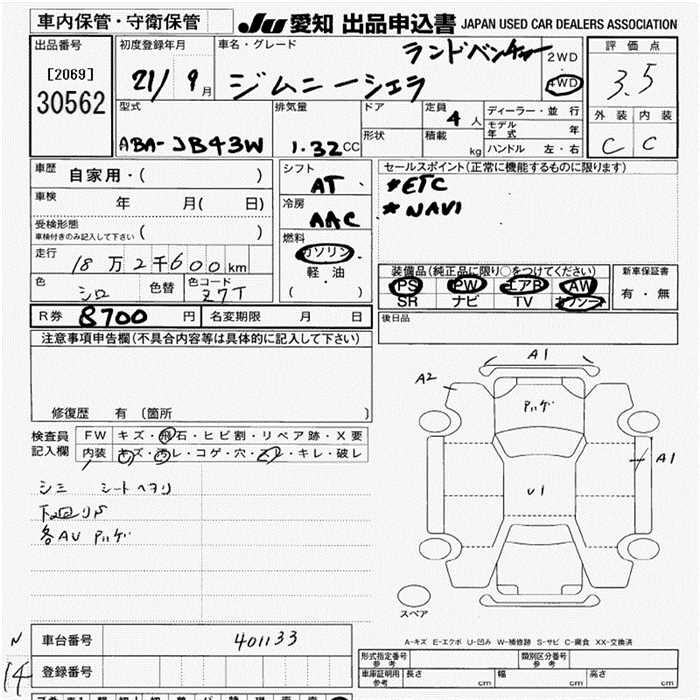 車内保管・守衛保管
JU 愛知 出品申込書 JAPAN USED CAR DEALERS ASSOCIATION
出品番号
[2069]
30562
初度登録年月
21/9月
車名・グレード
ランドベンチャー
ジムニーシエラ
2WD
4WD
評価点
3.5
外装 内装
C C
型式
ABA-JB43W
排気量
1.32cc
ドア
形状
定員
4人
積載
kg
ディーラー・並行
モデル年式 年
ハンドル 左・右
車歴
自家用・( )
車検 年 月( 日)
受検形態
車検付きのみ記入して下さい ( )
走行
18万2千600km
色
シロ
色替
色コード
Z7T
シフト
AT
冷房
AAC
燃料
ガソリン
軽油
( )
セールスポイント(正常に機能するものに限ります)
*ETC
*NAVI
装備品(純正品に限り○をつけてください)
PS PW エアB AW
SR ナビ TV カワシート
新車保証書
有・無
R券 8700 円 名変期限 月 日
後日品
注意事項申告欄(不具合内容等は具体的に記入して下さい)
修復歴 有 (箇所 )
検査員
記入欄
FW キズ・飛石・ヒビ割・リペア跡・X要
内装 キズ・汚レ・コゲ・穴・スレ・キレ・破レ
シミ シートヘタリ
下回りS
各AU Pハゲ
A1
A2
Pハゲ
A1
U1
スペア
A-キズ E-エクボ U-凹み W-補修跡 S-サビ C-腐食 XX-交換済
車台番号 401133
登録番号
N
14
形式指定番号
参考
類別区分番号
参考
車庫証明用
参考
長さ cm 幅 cm 高さ cm